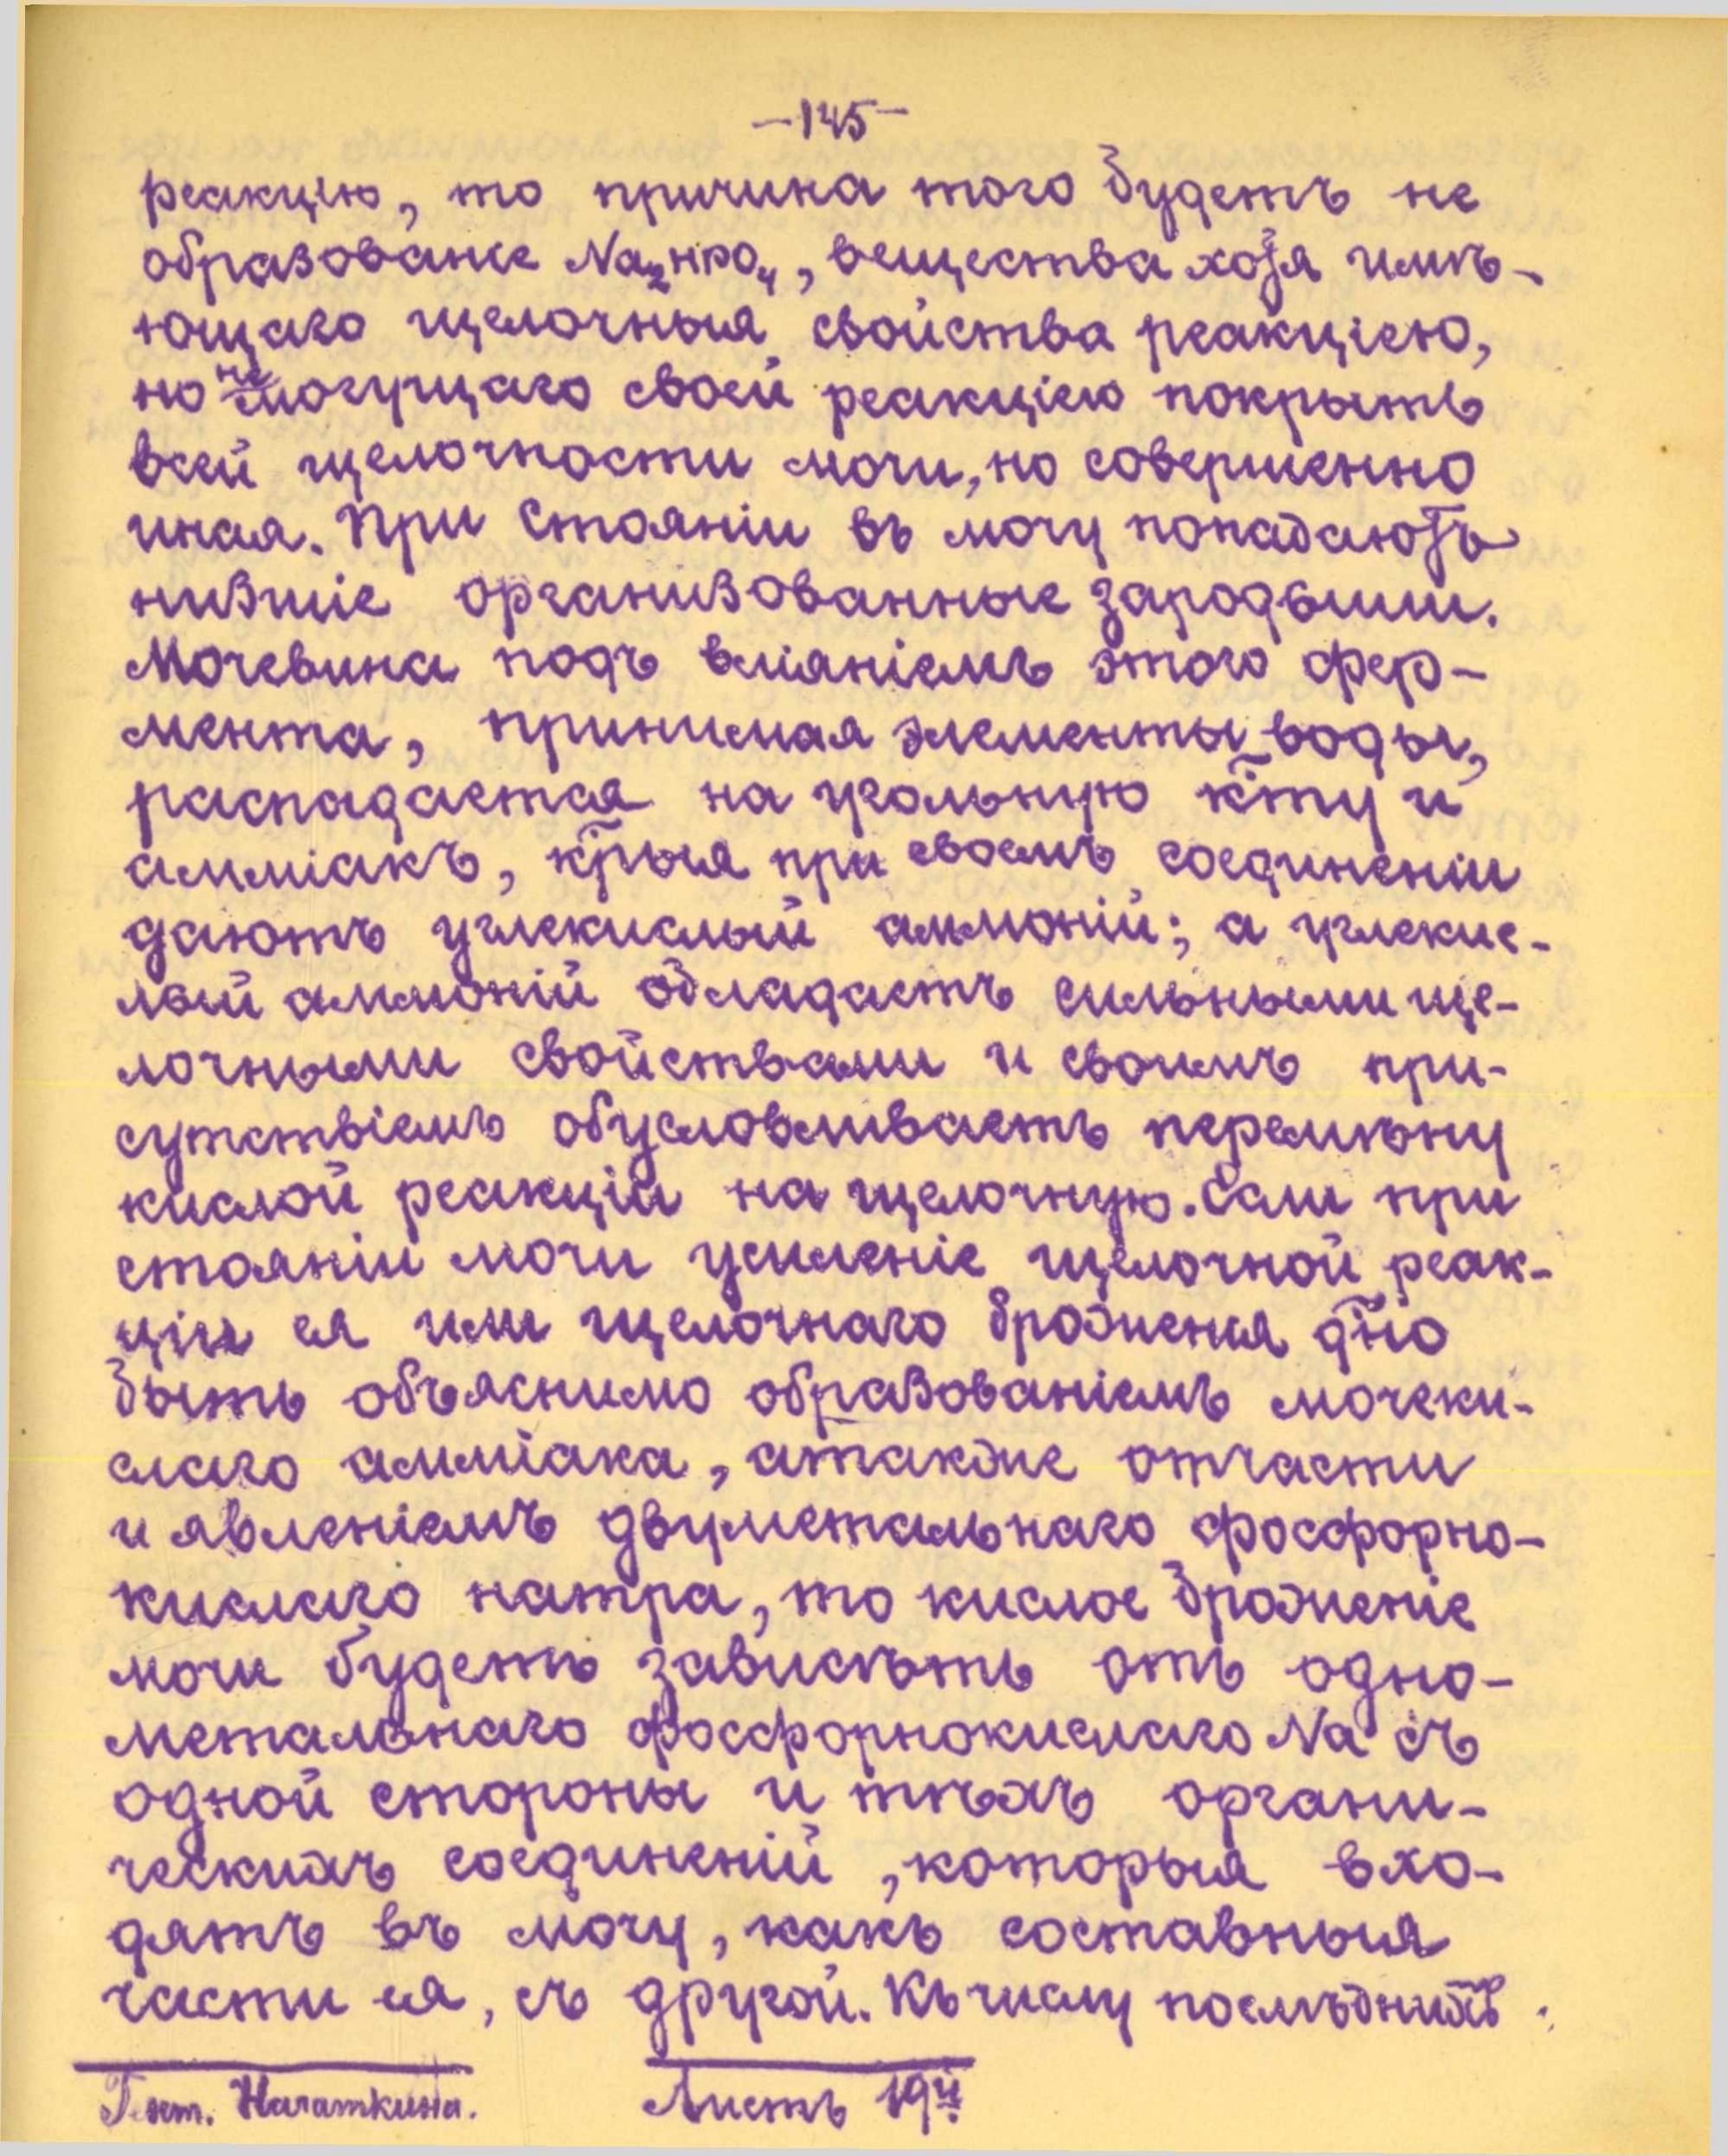 —145—
реакцію, то причина того будетъ не
образованіе Na₂HPO₄, вещества хотя имѣ-
ющаго щелочныя свойства реакціею,
но не могущаго своей реакціею покрыть
всей щелочности мочи, но совершенно
иная. При стояніи въ мочу попадаютъ
низшіе организованные зародыши.
Мочевина подъ вліяніемъ этого фер-
мента, принимая элементы воды,
распадается на угольную к̃ту и
амміакъ, к̃рыя при своемъ соединеніи
даютъ углекислый аммоній; а углекис-
лый аммоній обладаетъ сильными ще-
лочными свойствами и своимъ при-
сутствіемъ обусловливаетъ перемѣну
кислой реакціи на щелочную. Если при
стояніи мочи усиленіе щелочной реак-
ціи ея или щелочнаго броженія д̃но
быть объяснимо образованіемъ мочеки-
слаго амміака, а также отчасти
и явленіемъ двуметальнаго фосфорно-
кислаго натра, то кислое броженіе
мочи будетъ зависѣть отъ одно-
метальнаго фосфорнокислаго Na съ
одной стороны и тѣхъ органи-
ческихъ соединеній, которыя вхо-
дятъ въ мочу, какъ составныя
части ея, съ другой. Къ числу послѣднихъ
Гект. Начаткина. Листъ 19й